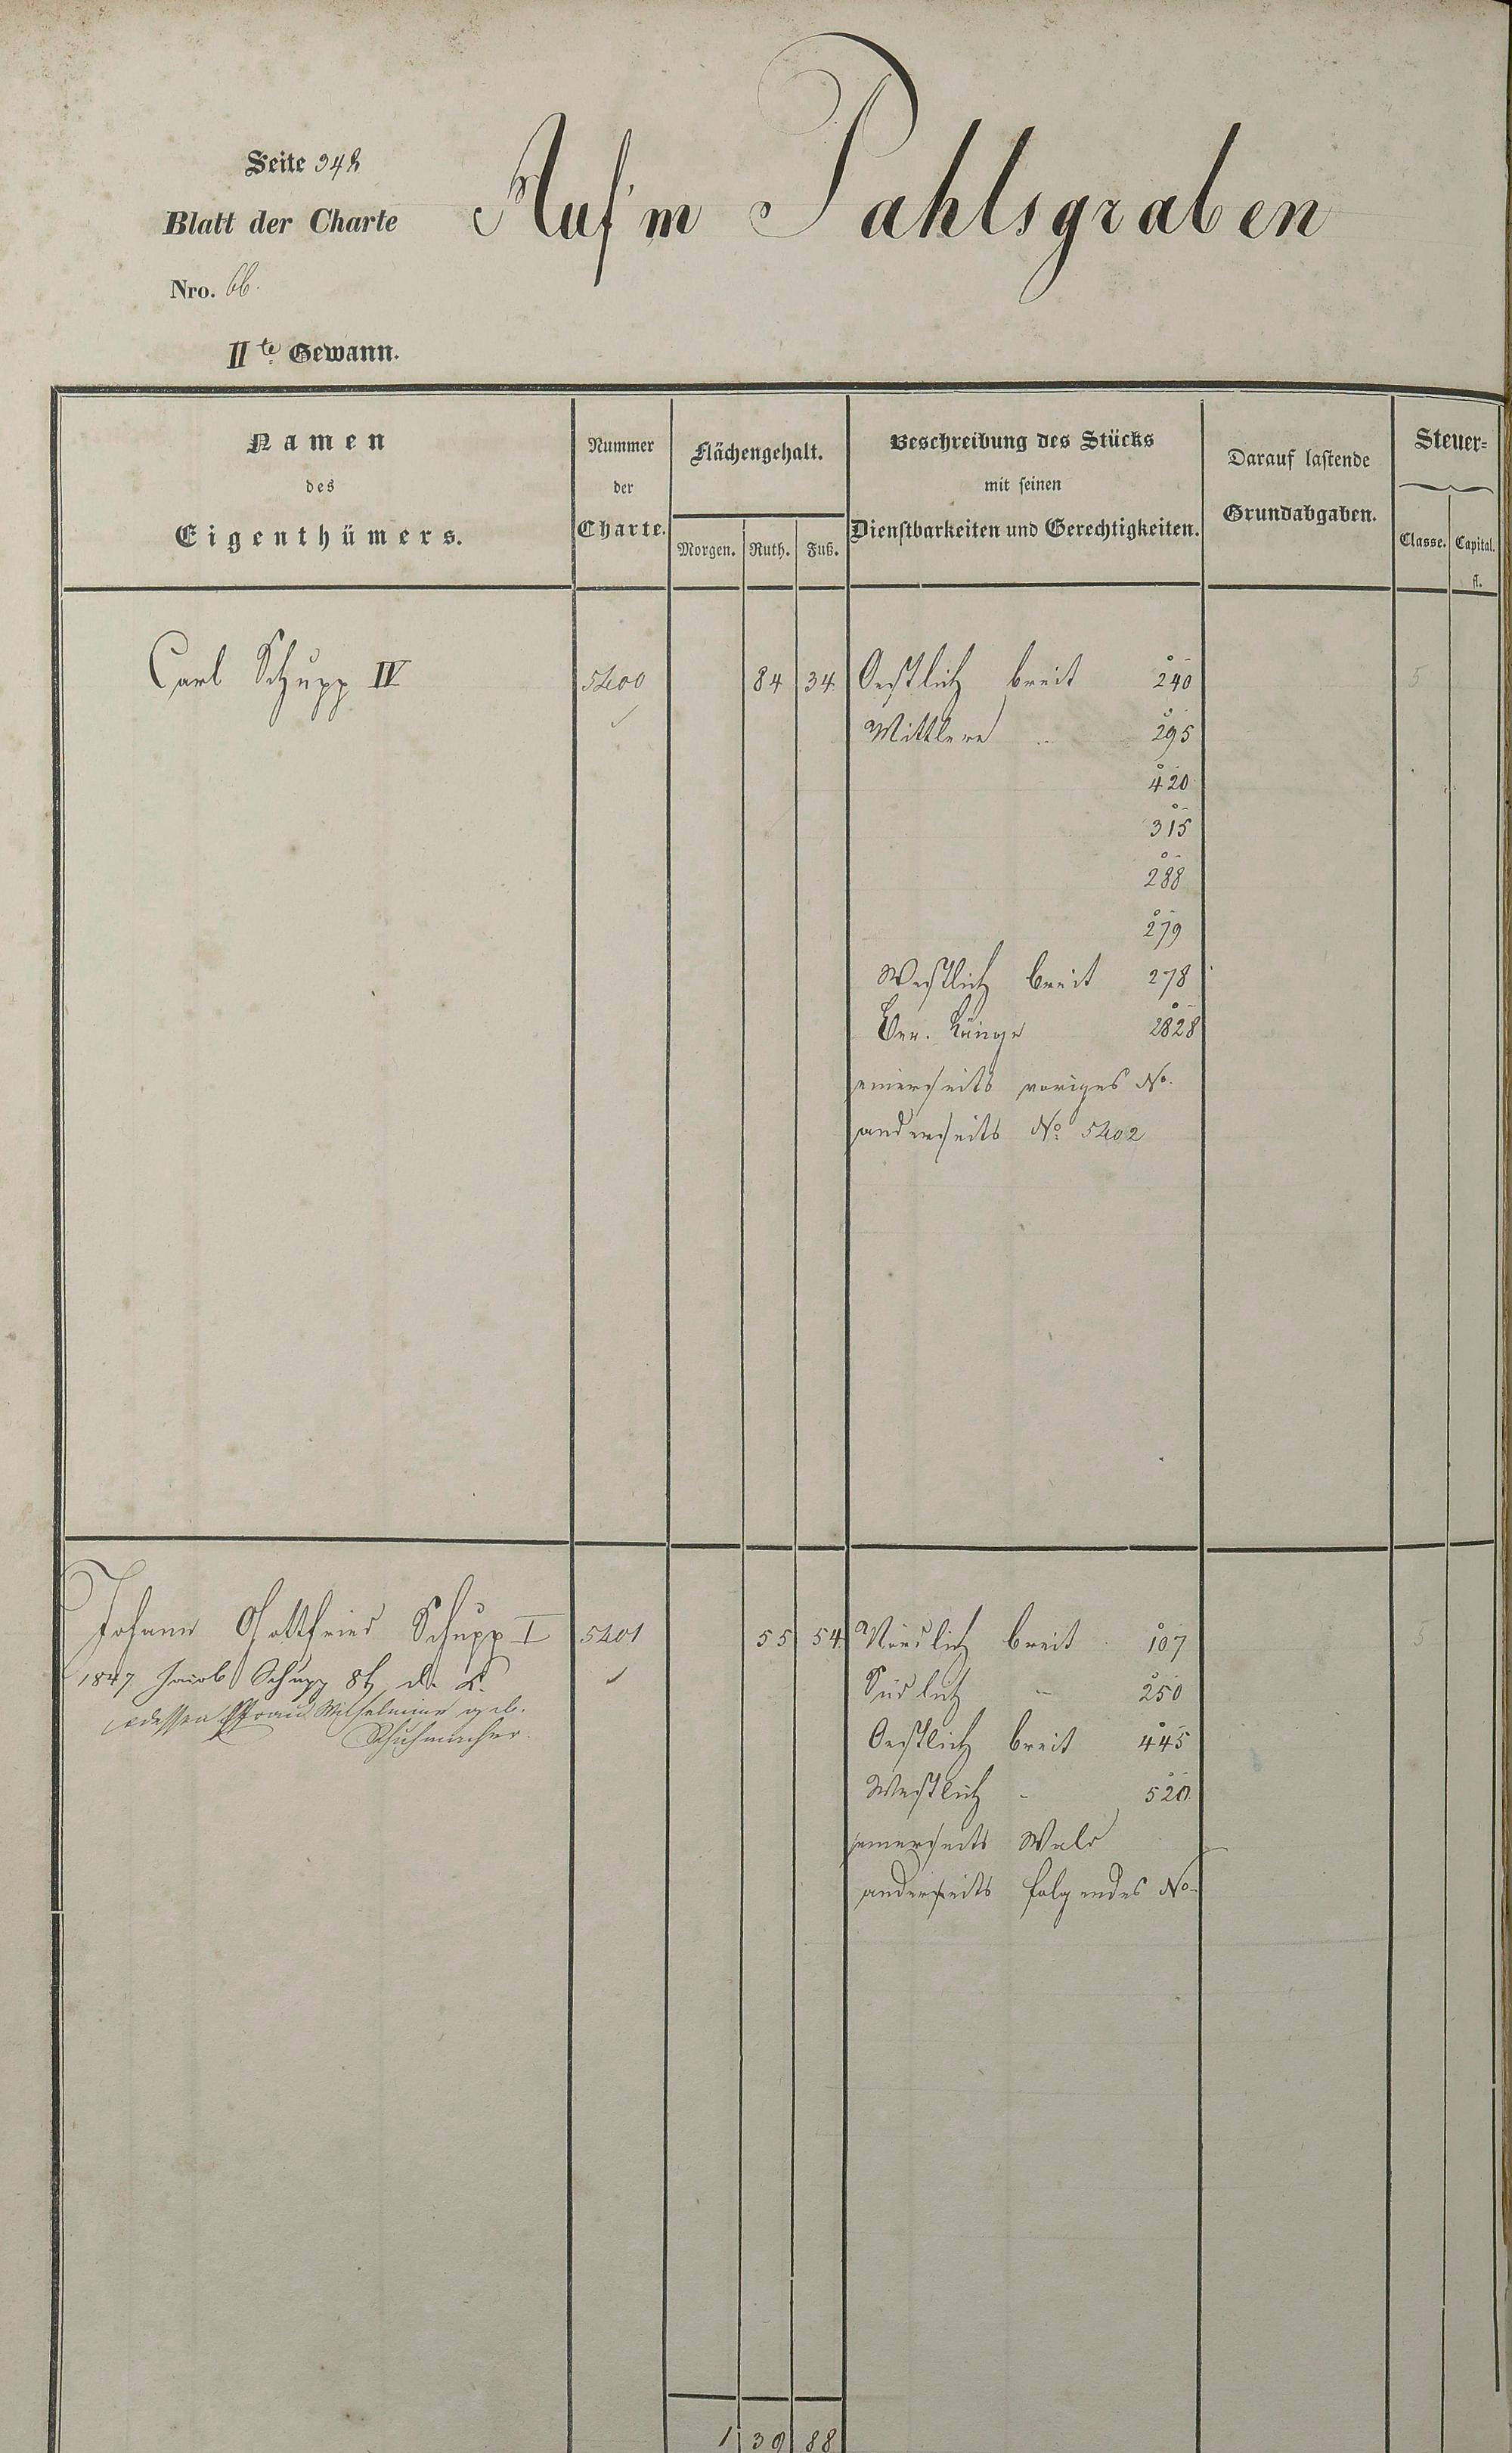 Seite 342
Blatt der Charte
Nro. 66.
IIte Gewann.
Auf'm Pahlsgraben
Namen des Eigenthümers.
Nummer der Charte.
Flächengehalt.
Morgen. Ruth. Fuß.
Beschreibung des Stücks mit seinen Dienstbarkeiten und Gerechtigkeiten.
Darauf lastende Grundabgaben.
Steuer-
Classe. Capital. fl.
Carl Schupp IV 5400 84 34 Oestlich breit 240 5
Mittlere " 295
420
315
288
279
Westlich breit 278
Ver. Länge 2828
einerseits voriges No.
anderseits No 5402
Johann Gottfried Schupp I 5401 55 54 Nördlich breit 107 5
1847 Jacob Schupp 8t d. L. Südlich " 250
dessen Frau Wilhelmine geb.
Schuhmacher.
Oestlich breit 445
Westlich " 520
einerseits Wald
anderseits folgendes No
1 39 88